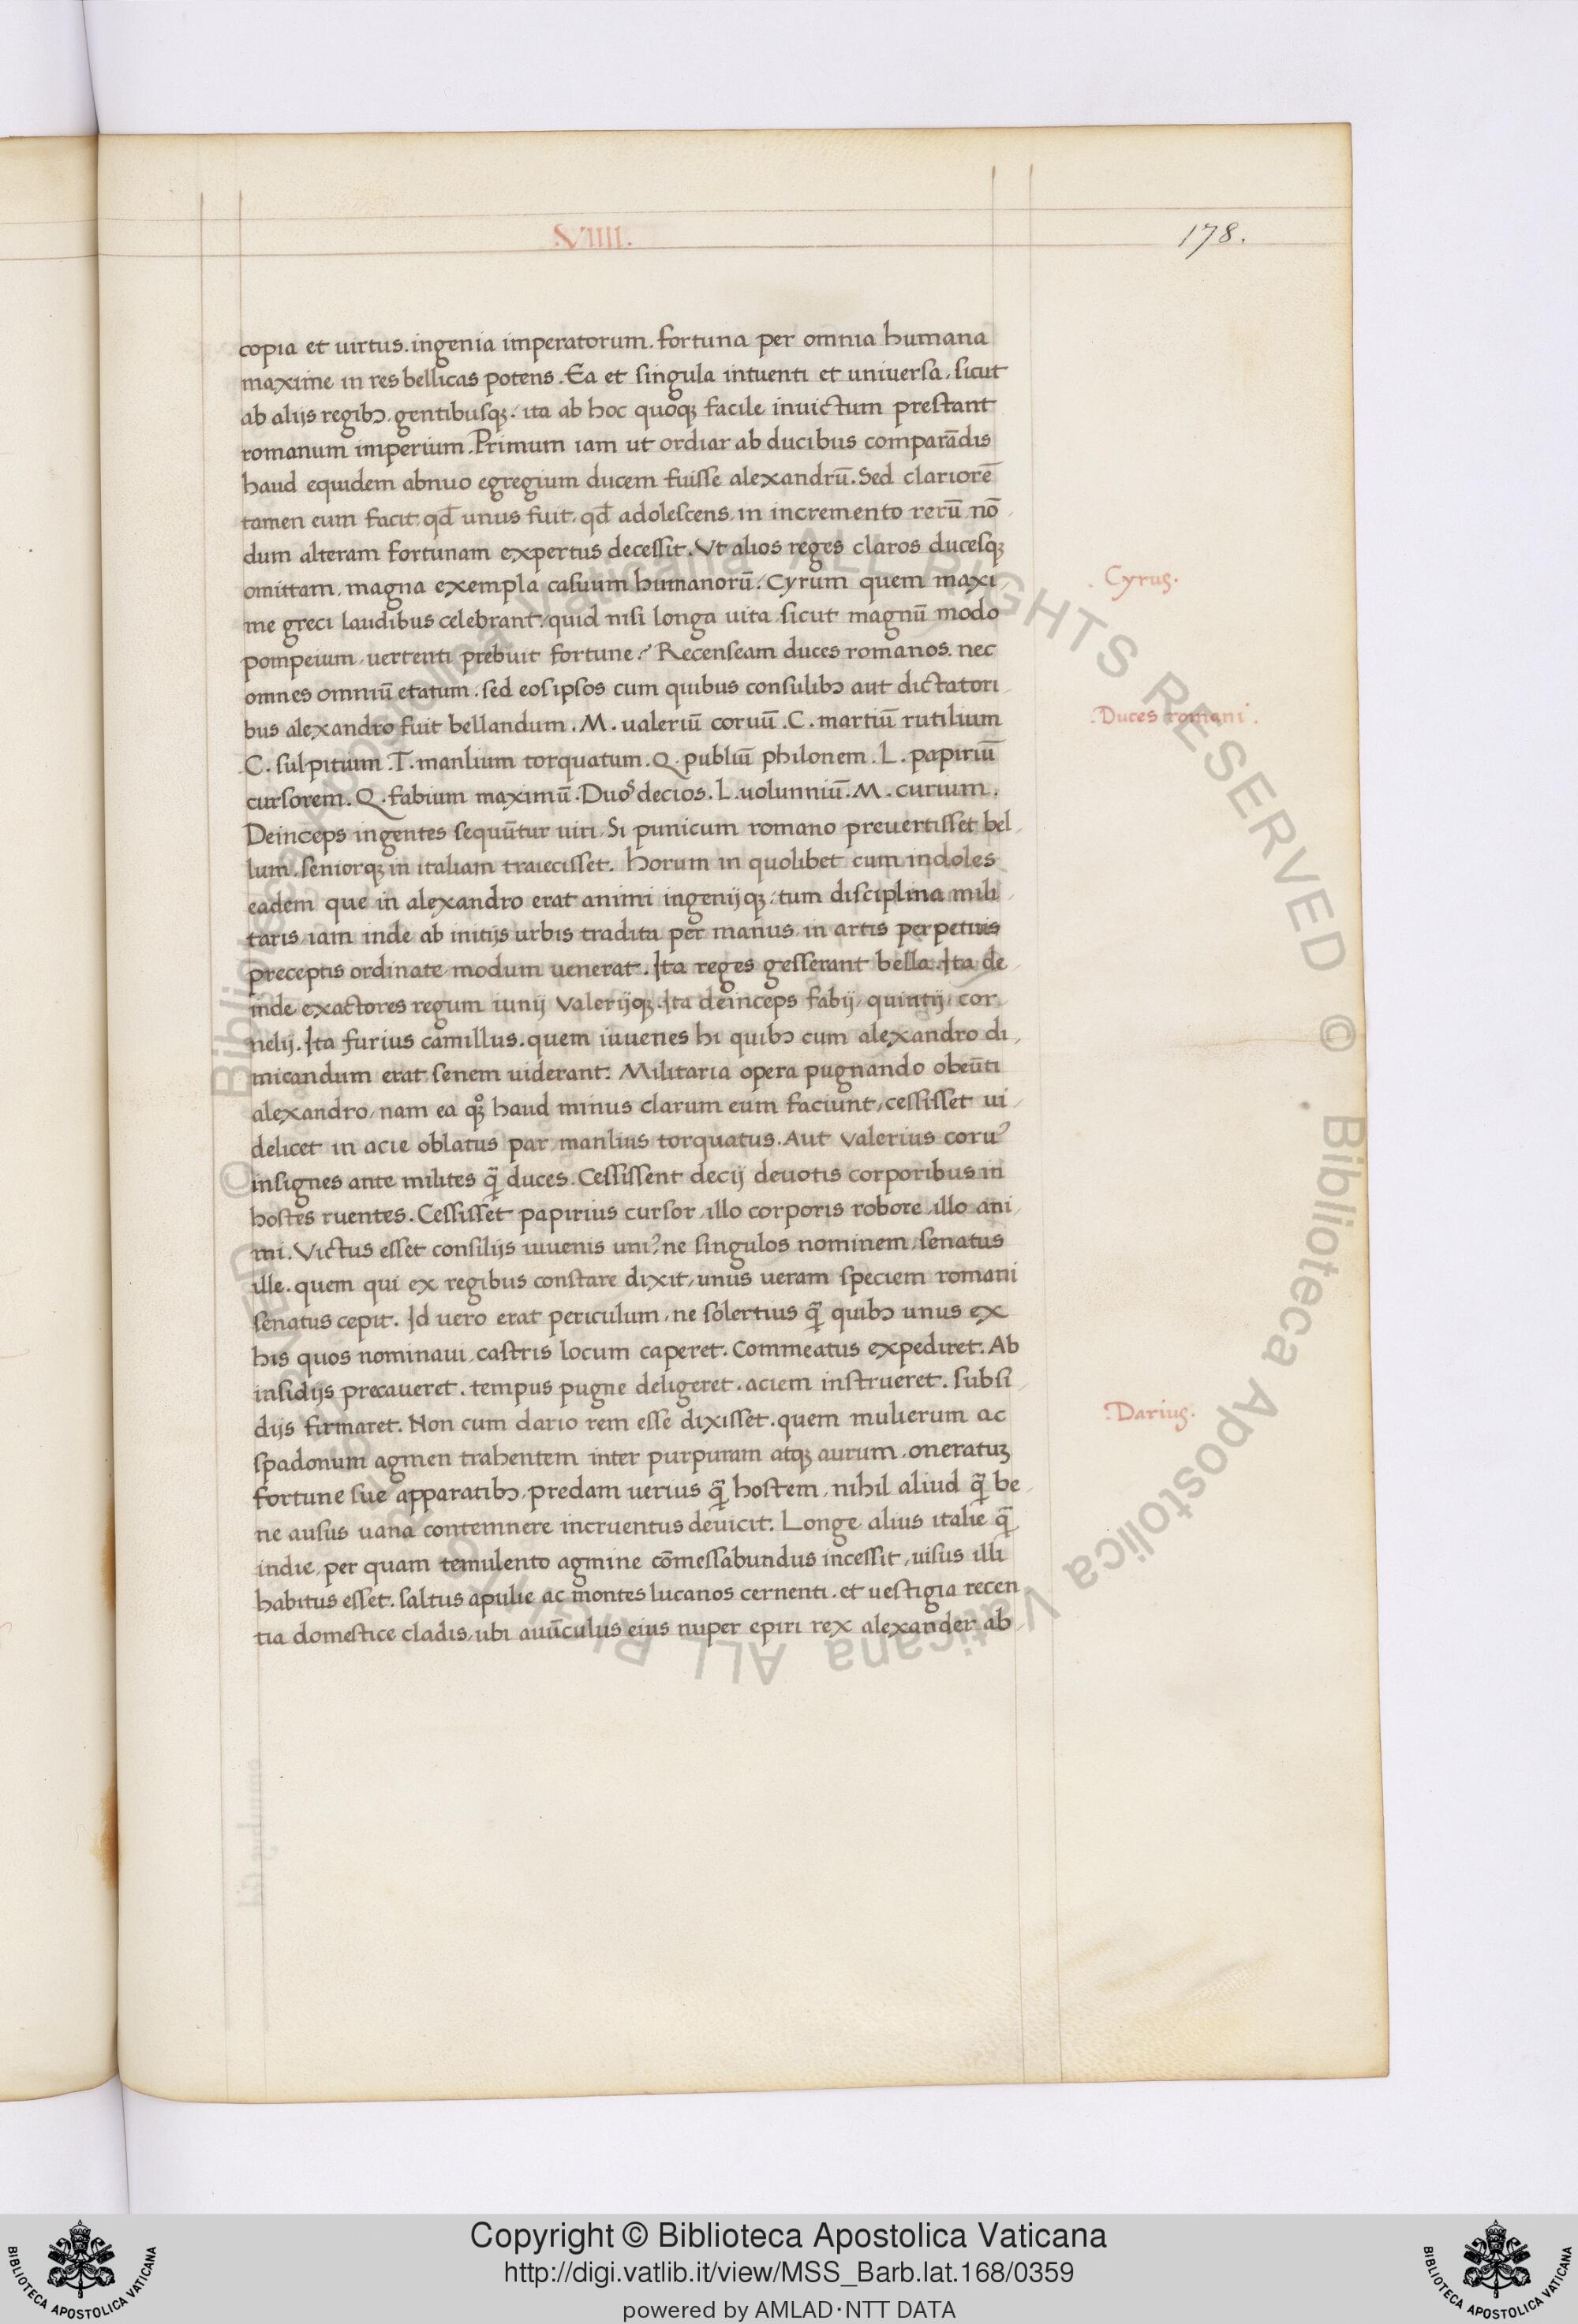 .VIIII.
178.
copia et uirtus. ingenia imperatorum. fortuna per omnia humana
maxime in res bellicas potens. Ea et singula intuenti et uniuersa, sicut
ab alijs regibꝫ, gentibusqꝫ, ita ab hoc quoqꝫ facile inuictum prestant
romanum imperium. Primum iam ut ordiar ab ducibus comparādis
haud equidem abnuo egregium ducem fuisse alexandrū. Sed clariorē
tamen eum facit, qđ unus fuit, qđ adolescens, in incremento rerū nō
dum alteram fortunam expertus decessit. Vt alios reges claros ducesqꝫ
omittam, magna exempla casuum humanorū, Cyrum quem maxi
me greci laudibus celebrant, quid nisi longa uita, sicut magnū modo
pompeium, uertenti prebuit fortune? Recenseam duces romanos. nec
omnes omniū etatum. sed eos ipsos cum quibus consulibꝫ aut dictatori
bus alexandro fuit bellandum. M. ualeriū coruū. C. martiū rutilium
C. sulpitium. T. manlium torquatum. Q. publiū philonem. L. papiriū
cursorem. Q. fabium maximū. Duos decios. L. uolunniū. M. curium.
Deinceps ingentes sequūtur uiri, Si punicum romano preuertisset bel
lum, seniorqꝫ in italiam traiecisset. Horum in quolibet cum indoles
eadem que in alexandro erat animi ingenijqꝫ, tum disciplina mili
taris, iam inde ab initijs urbis tradita per manus, in artis perpetuis
preceptis ordinate modum uenerat. Ita reges gesserant bella. Ita de
inde exactores regum iunij Valerijqꝫ. Ita deinceps fabij, quintij, cor
nelij. Ita furius camillus. quem iuuenes hi quibꝫ cum alexandro di
micandum erat senem uiderant. Militaria opera pugnando obeūti
alexandro, nam ea qꝫ haud minus clarum eum faciunt, cessisset ui
delicet in acie oblatus par manlius torquatus. Aut Valerius coruꝰ
insignes ante milites q̄ duces. Cessissent decij deuotis corporibus in
hostes ruentes. Cessisset papirius cursor, illo corporis robore, illo ani
mi. Victus esset consilijs iuuenis uniꝰ, ne singulos nominem, senatus
ille. quem qui ex regibus constare dixit, unus ueram speciem romani
senatus cepit. Id uero erat periculum, ne solertius q̄ quibꝫ unus ex
his quos nominaui, castris locum caperet. Commeatus expediret. Ab
insidijs precaueret. tempus pugne deligeret. aciem instrueret. subsi
dijs firmaret. Non cum dario rem esse dixisset. quem mulierum ac
spadonum agmen trahentem inter purpuram atqꝫ aurum, oneratuꝫ
fortune sue apparatibꝫ, predam uerius q̄ hostem, nihil aliud q̄ be
ne ausus uana contemnere incruentus deuicit. Longe alius italie q̄
indie, per quam temulento agmine cōmessabundus incessit, uisus illi
habitus esset. saltus apulie ac montes lucanos cernenti. et uestigia recen
tia domestice cladis, ubi auūculus eius nuper epiri rex alexander ab
Cyrus.
.Duces romani.
.Darius.
Copyright © Biblioteca Apostolica Vaticana
http://digi.vatlib.it/view/MSS_Barb.lat.168/0359
powered by AMLAD·NTT DATA
BIBLIOTECA APOSTOLICA VATICANA
BIBLIOTECA APOSTOLICA VATICANA
© Biblioteca Apostolica Vaticana ALL RIGHTS RESERVED © Biblioteca Apostolica Vaticana ALL RIGHTS RESERVED